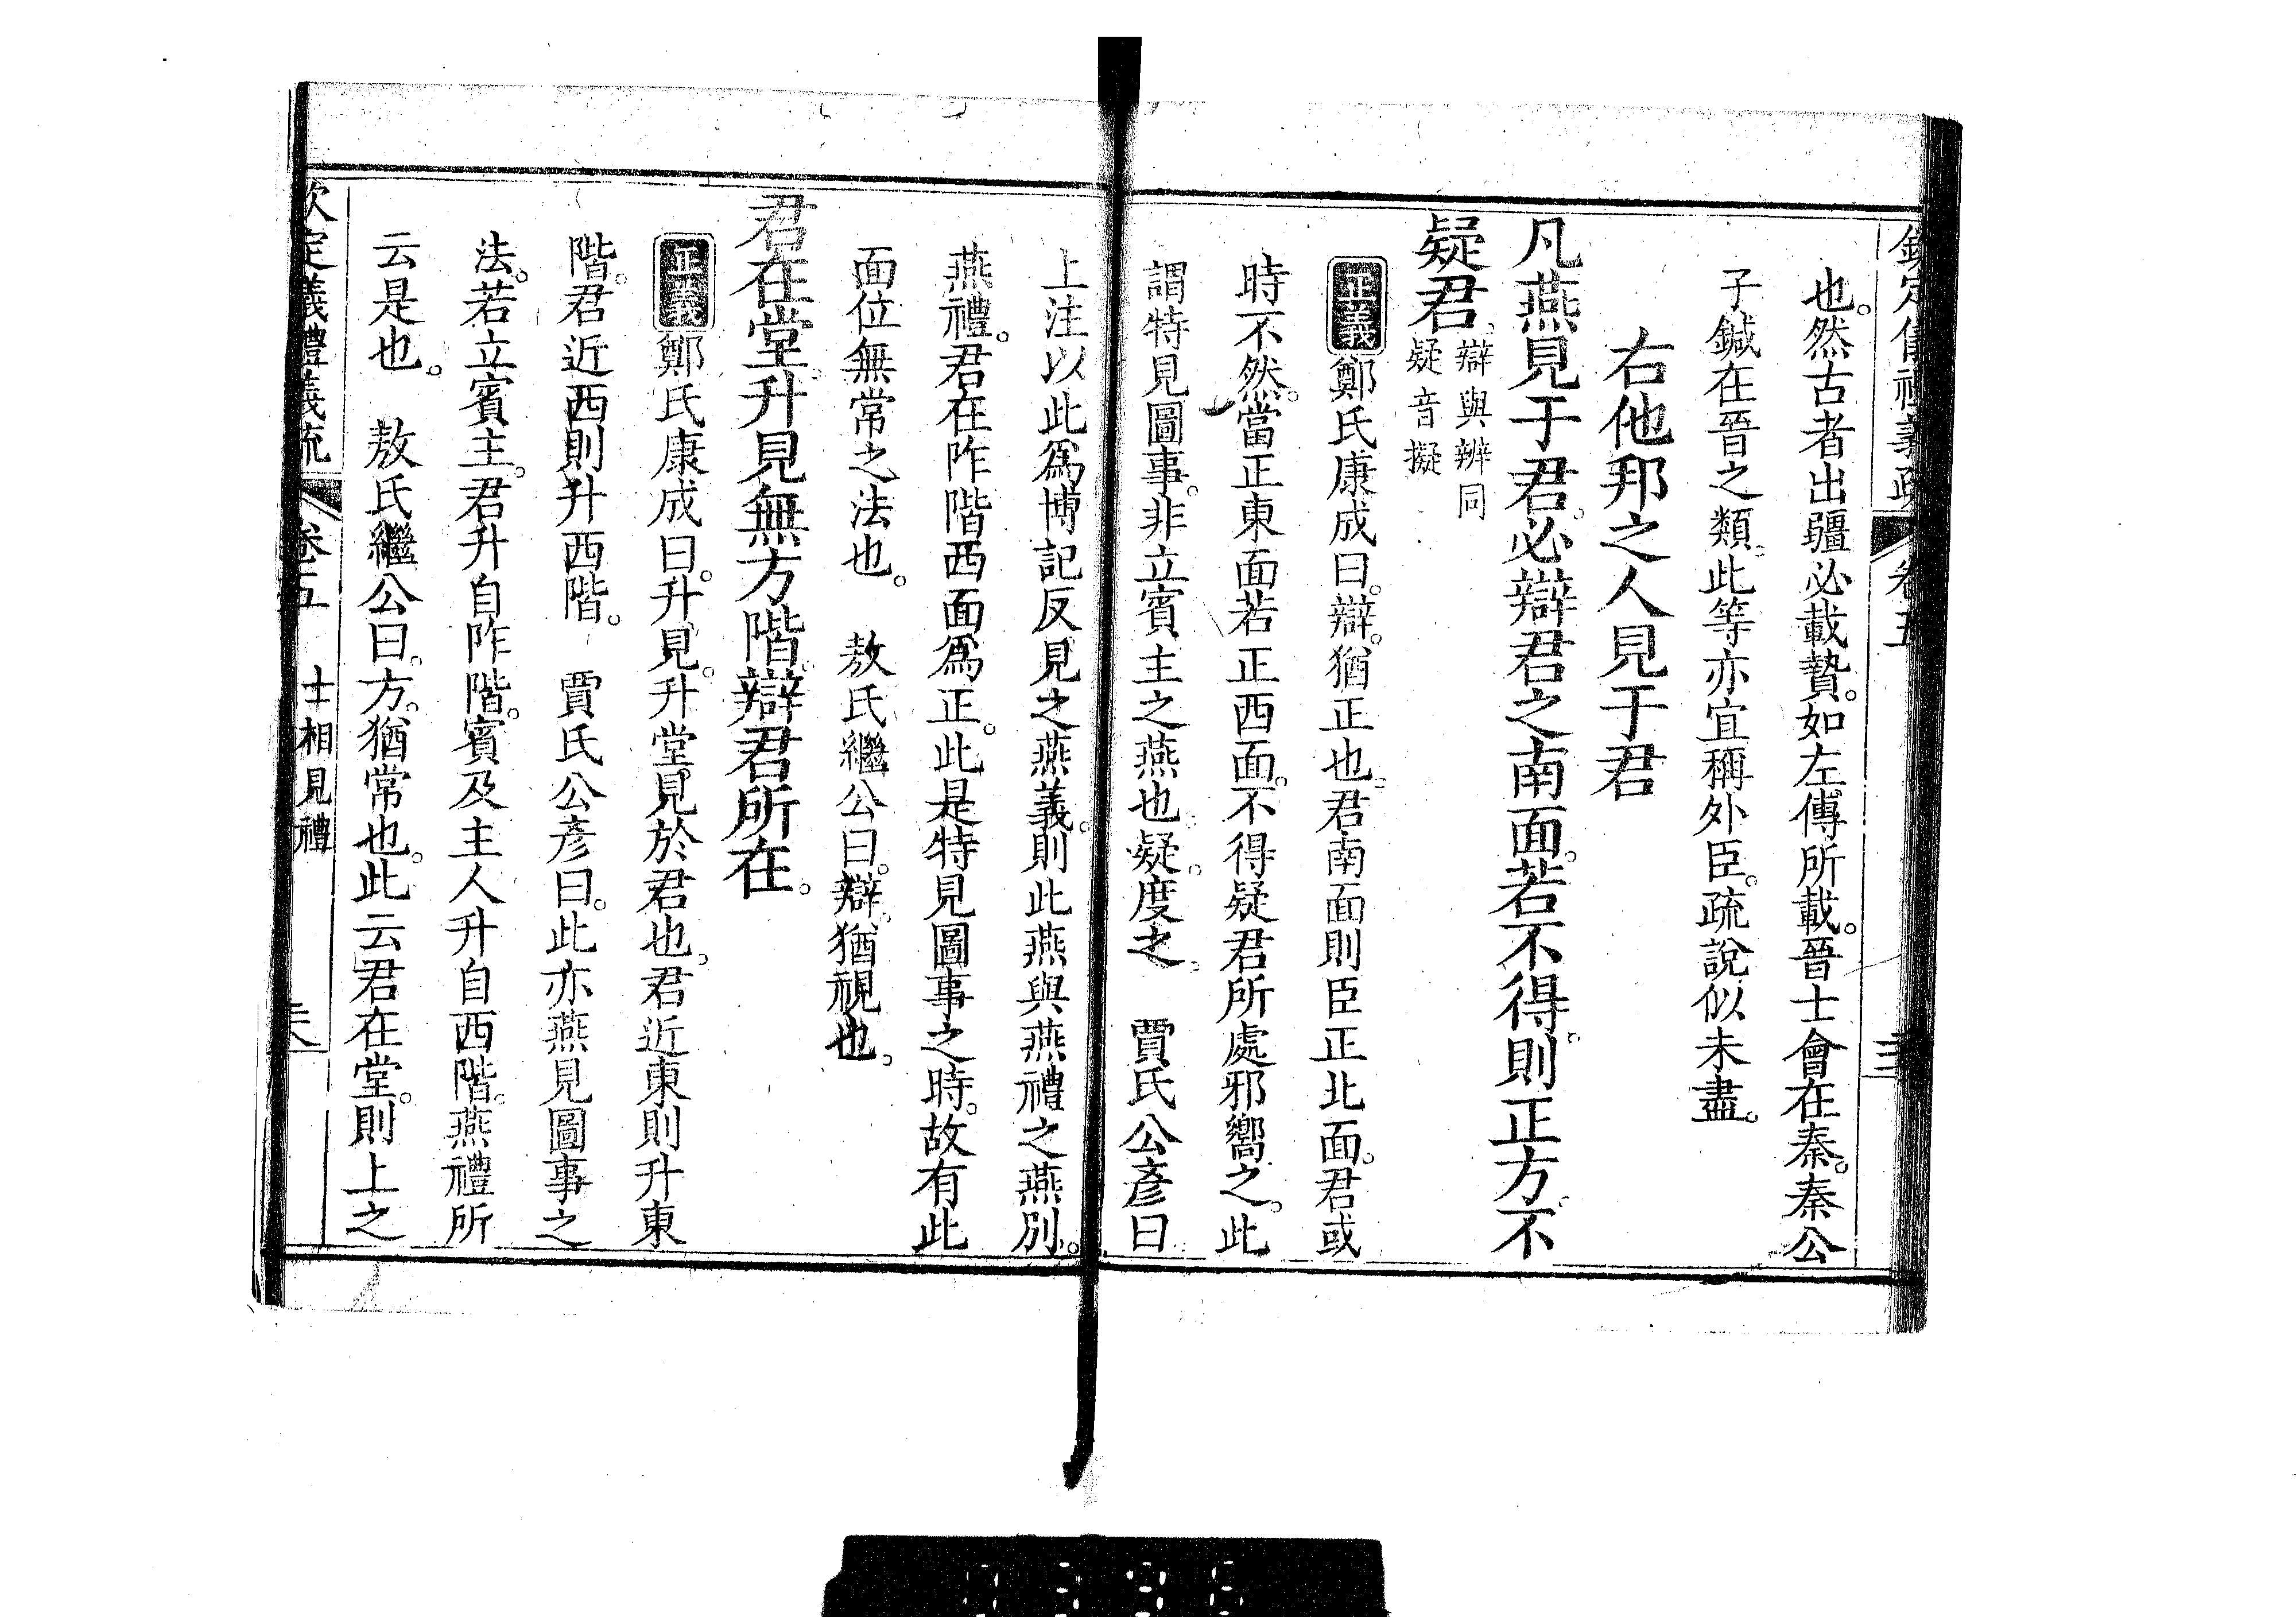 也。然古者出疆必載贄。如左傳所載。晉士會在秦。秦公
子鍼在晉之類。此等亦宜稱外臣。疏說似未盡。
右他邦之人見于君
凡燕見于君。必辯君之南面。若不得。則正方。不
疑君。辯與辨同
疑音擬
正義鄭氏康成曰。辯。猶正也。君南面則臣正北面。君或
時不然。當正東面若正西面。不得疑君所處邪嚮之。此
謂特見圖事。非立賓主之燕也。疑。度之。 賈氏公彥曰
上注以此爲博記反見之燕義。則此燕與燕禮之燕別。
燕禮。君在阼階西面爲正。此是特見圖事之時。故有此
面位無常之法也。 敖氏繼公曰。辯。猶視也。
君在堂。升見無方階。辯君所在。
正義鄭氏康成曰。升見。升堂見於君也。君近東則升東
階。君近西則升西階。 賈氏公彥曰。此亦燕見圖事之
法。若立賓主。君升自阼階。賓及主人升自西階。燕禮所
云是也。 敖氏繼公曰。方。猶常也。此云君在堂。則上之
欽定義禮義疏 卷五 士相見禮